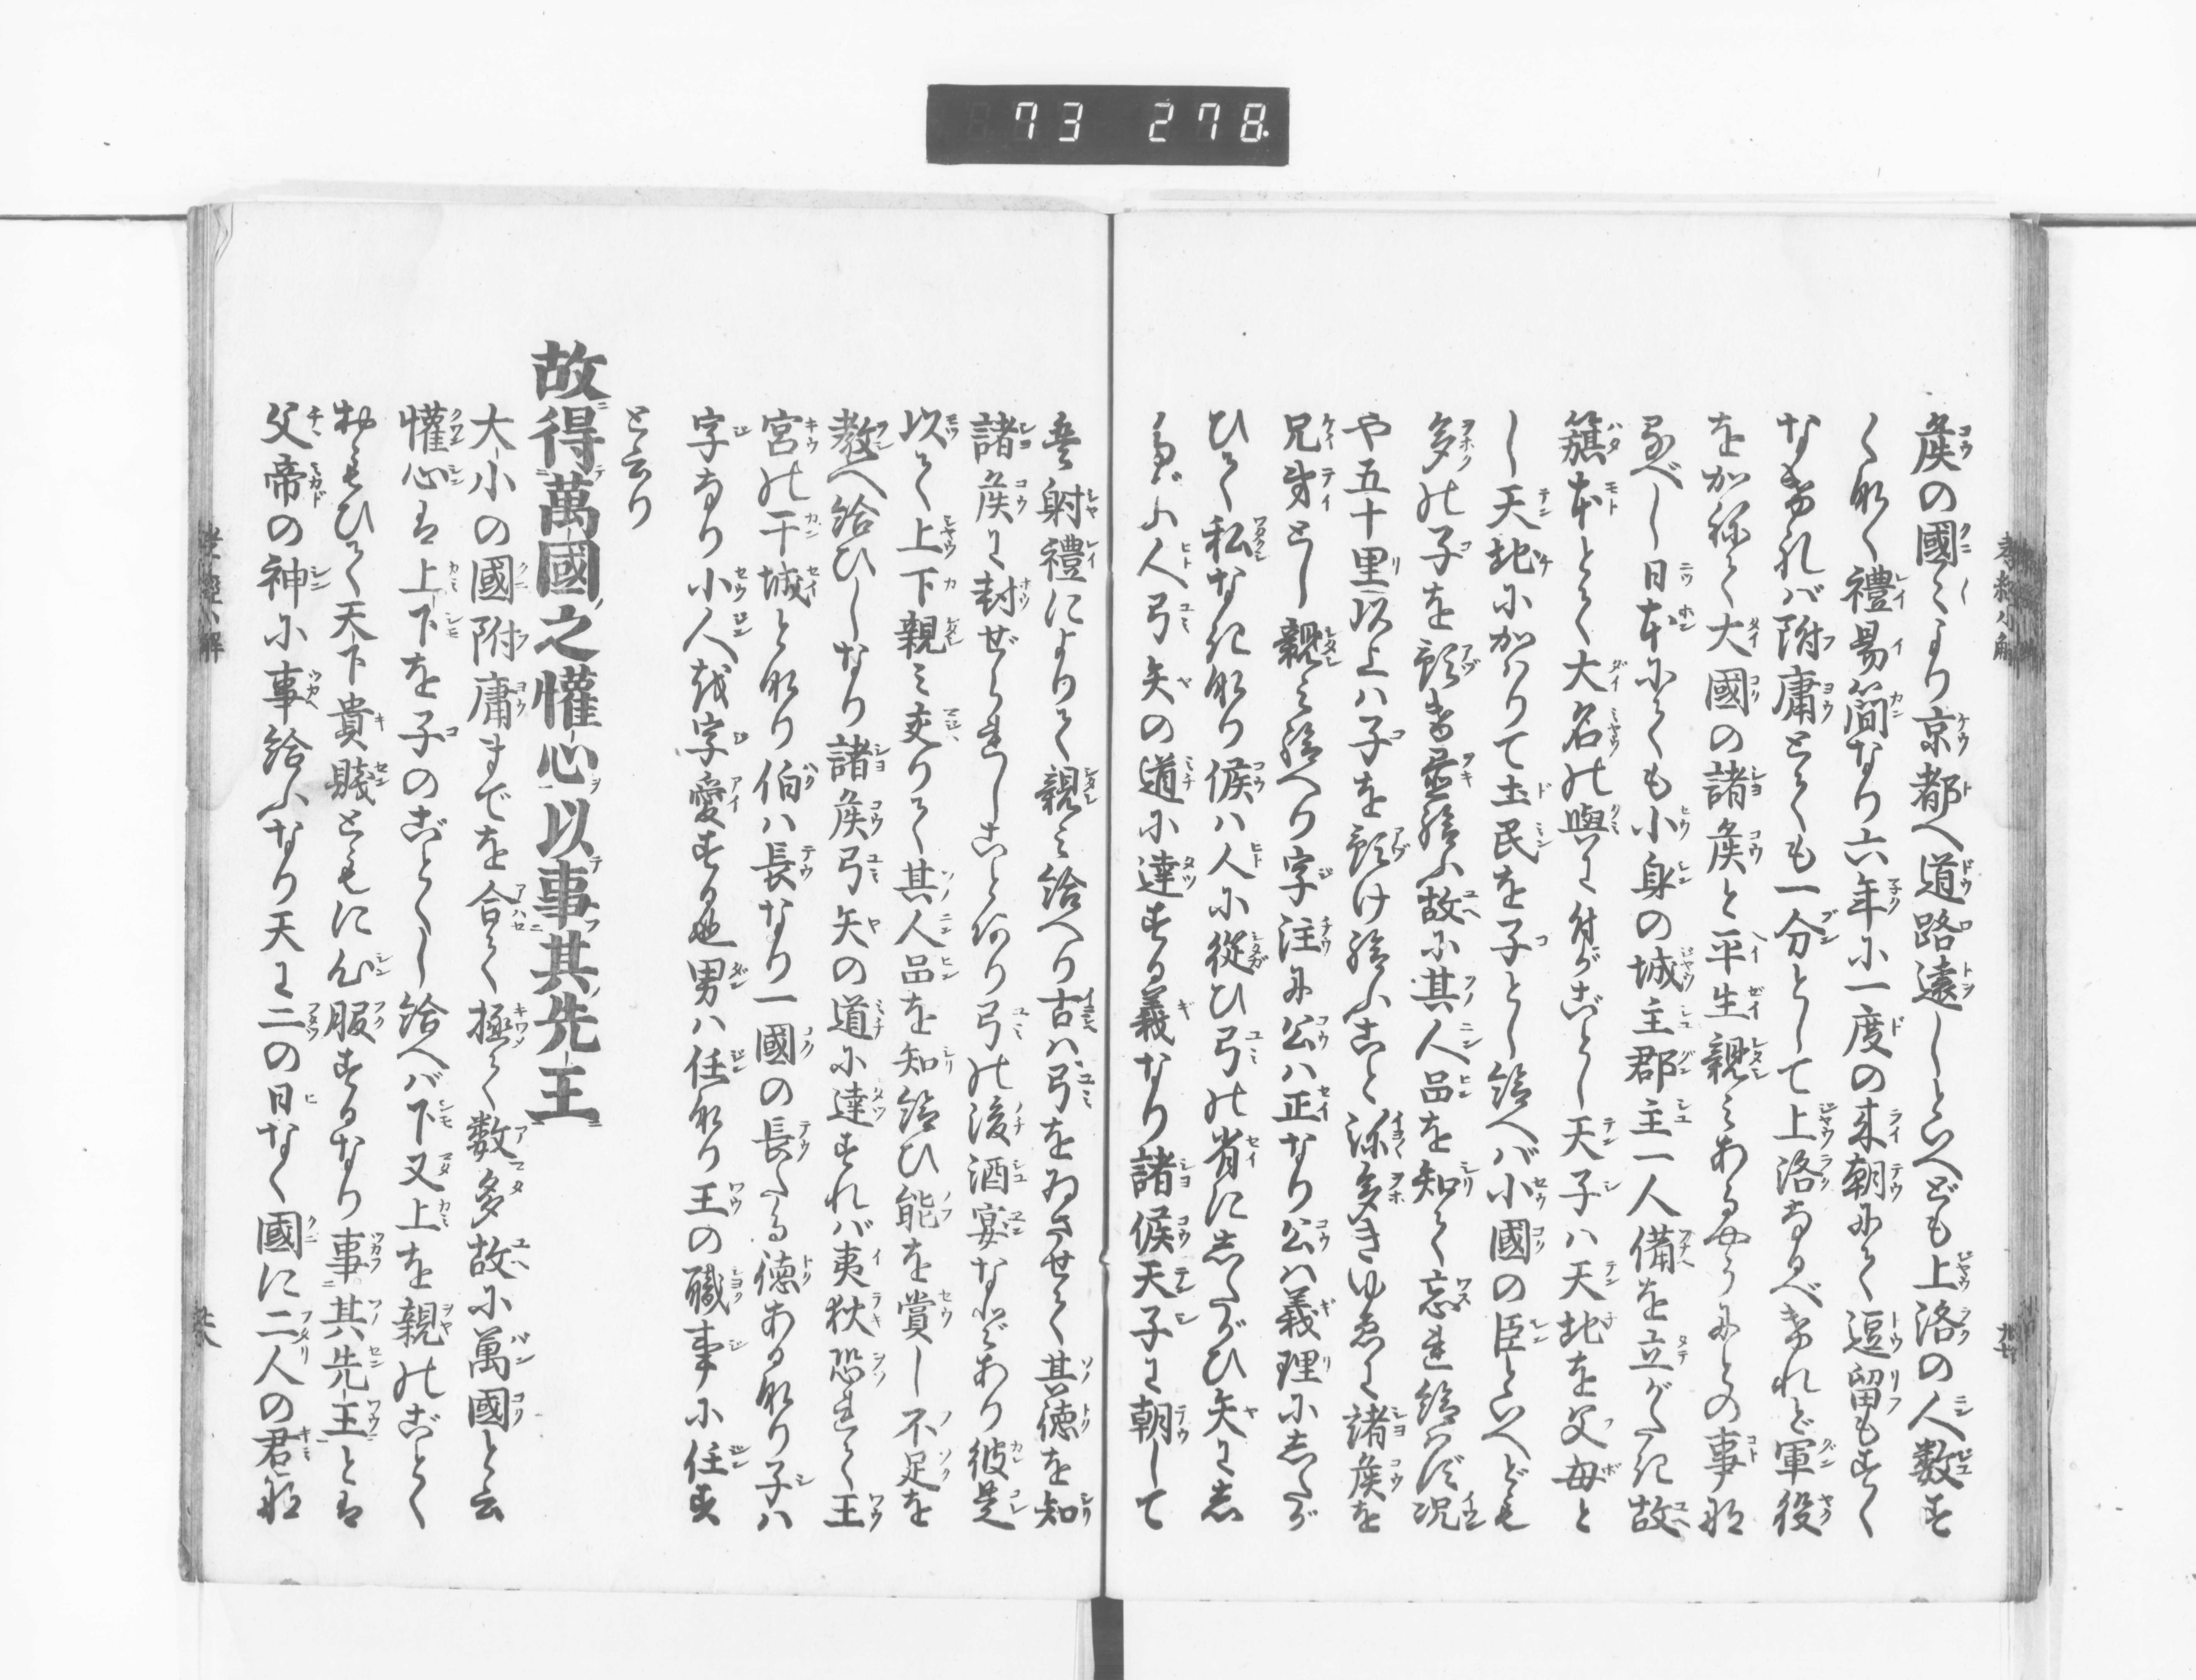 73 278
侯の國〻より京都へ道路遠しといへども上洛の人数す
くなく禮易簡なり六年に一度の来朝にて逗留もすく
なけれバ附庸とても一分として上洛なるべきけれど軍役
をかねて大國の諸侯と平生親ミあるやうにとの事な
るべし日本にても小身の城主郡主一人備を立がたき故
籏本とて大名の與に付がごとし天子ハ天地を父母と
し天地に加りて土民を子とし給へバ小國の臣といへども
多の子を預け置給ふ故に其人品を知て忘れ給はず况
や五十里以上ハ子を預け給ふこと弥多きゆゑに諸侯を
兄弟とし親ミ給へり字注に公ハ正なり公ハ義理にしたが
ひて私なきなり候ハ人に從ひ弓の省にしたがひ矢にし
たがふ人弓矢の道に達する義なり諸候天子に朝して
射禮によりて親ミ給へり古ハ弓をゐさせて其徳を知
諸侯に封ぜられしことあり弓の後酒宴などあり彼是
以て上下親ミ交りて其人品を知給ひ能を賞し不足を
教へ給ひしなり諸侯弓矢の道に達すれバ夷狄恐れて王
宮の干城となり伯ハ長なり一國の長たる徳あるなり子ハ
字なり小人を字愛する也男ハ任なり王の職事に任す
と云り
故得萬國之懽心以事其先王
大小の國附庸までを合て極て数多故に萬國と云
懽心は上下を子のごとくし給へバ下又上を親のごとく
おもひて天下貴賤ともに心服するなり事其先王とは
父帝の神に事給ふなり天に二の日なく國に二人の君な
孝經小解